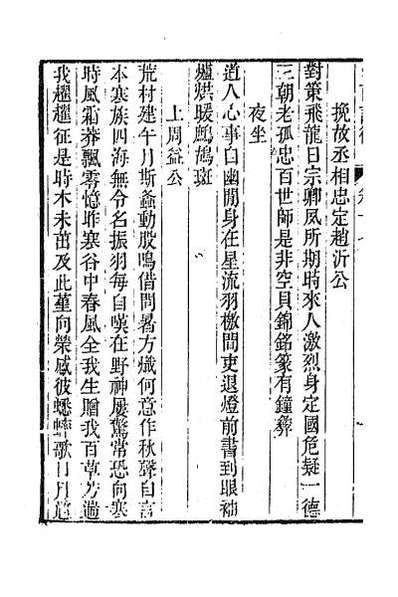 挽故丞相忠定趙沂公
對策飛龍日宗卿夙所期時來人激烈身定國危疑一德
三朝老孤忠百世師是非空貝錦銘篆有鐘彞
夜坐
道人心事白幽閒身在星流羽檄間吏退燈前書到眼袖
爐烘暖鷓鴣斑
上周益公
荒村建午月斯螽動股鳴借問暑方熾何意作秋聲自言
本寒族四海無令名振羽每自嘆在野神屢驚常恐向寒
時風霜莽飄零憶昨寒谷中春風全我生贈我百草芳適
我趯趯征是時木未茁及此堇向榮感彼蟋蟀歌日月